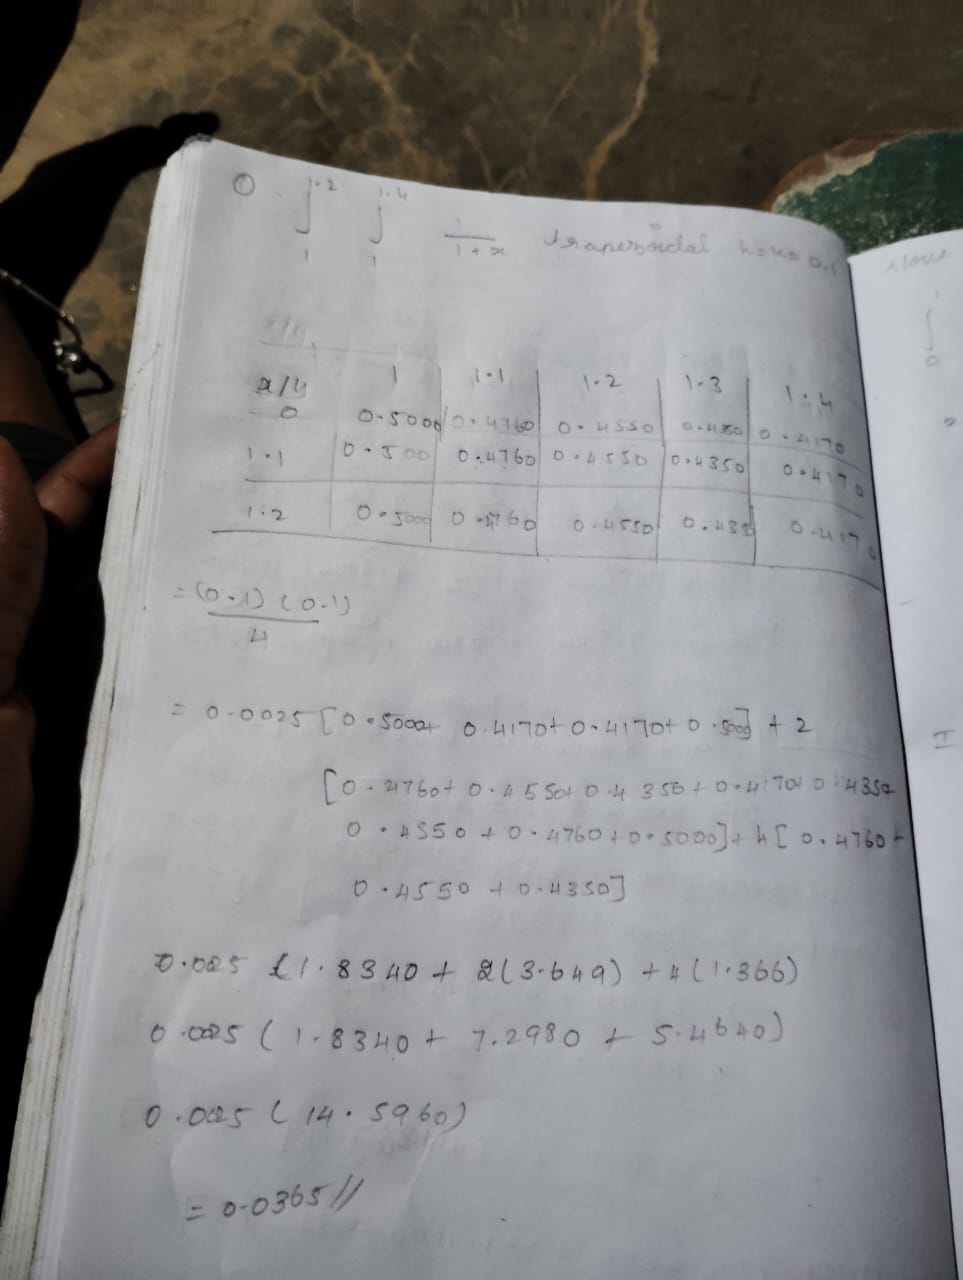 ① ∫ 1.2 1 ∫ 1.4 1 1/1+x trapezoidal h=k=0.1
x/y 1 1.1 1.2 1.3 1.4
0 0.5000 0.4760 0.4550 0.4350 0.4170
1.1 0.500 0.4760 0.4550 0.4350 0.4170
1.2 0.5000 0.4760 0.4550 0.435 0.4170
= (0.1) (0.1)
4
= 0.0025 [0.5000+ 0.4170+0.4170+0.5000] + 2
[0.4760+ 0.4550+ 0.4350+ 0.4170+ 0.4350+
0.4550 + 0.4760 + 0.5000]+ 4 [ 0.4760 +
0.4550 + 0.4350]
0.0025 {1.8340 + 2(3.649) + 4 (1.366)
0.0025 ( 1.8340 + 7.2980 + 5.4640)
0.0025 ( 14.5960)
= 0.0365//
0
I